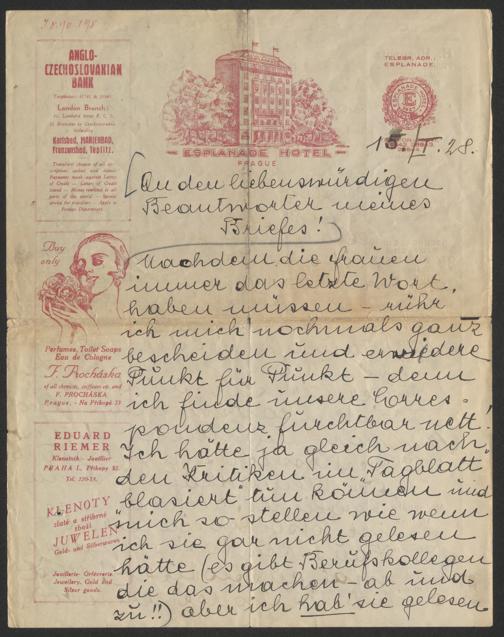 ANGLO-
CZECHOSLOVAKIAN
BANK
London Branch:
Karlsbad, MARIENBAD,
Franzensbad, Teplitz.
Buy
only
Perfumes, Toilet Soaps
Eau de Cologne
F. Procháska
of all chemists, coiffeurs etc. and
F. PROCHÁSKA
Prague, - Na Příkopě 23
EDUARD
RIEMER
Klenotník - Juwelier
PRAHA I., Příkopy
KLENOTY
zlaté a stříbrné
zboží
JUWELEN
Gold- und Silberwaren
Joaillerie-Orfèvrerie
Jewellery, Gold and
Silver goods.
ESPLANADE HOTEL
PRAGUE
TELEGR. ADR.:
ESPLANADE
E
I. 28.
An den liebenswürdigen
Beantworter meines
Briefes!
Nachdem die Frauen
immer das letzte Wort
haben müssen – rühr
ich mich nochmals ganz
bescheiden und erwiedere
Punkt für Punkt – denn
ich finde unsere Corres-
pondenz furchtbar nett!
Ich hätte ja gleich nach
den Kritiken im "Tagblatt"
"blasiert" tun können und
mich so stellen wie wenn
ich sie gar nicht gelesen
hätte (es gibt Berufskollegen
die das machen ab und
zu!!) aber ich hab' sie gelesen